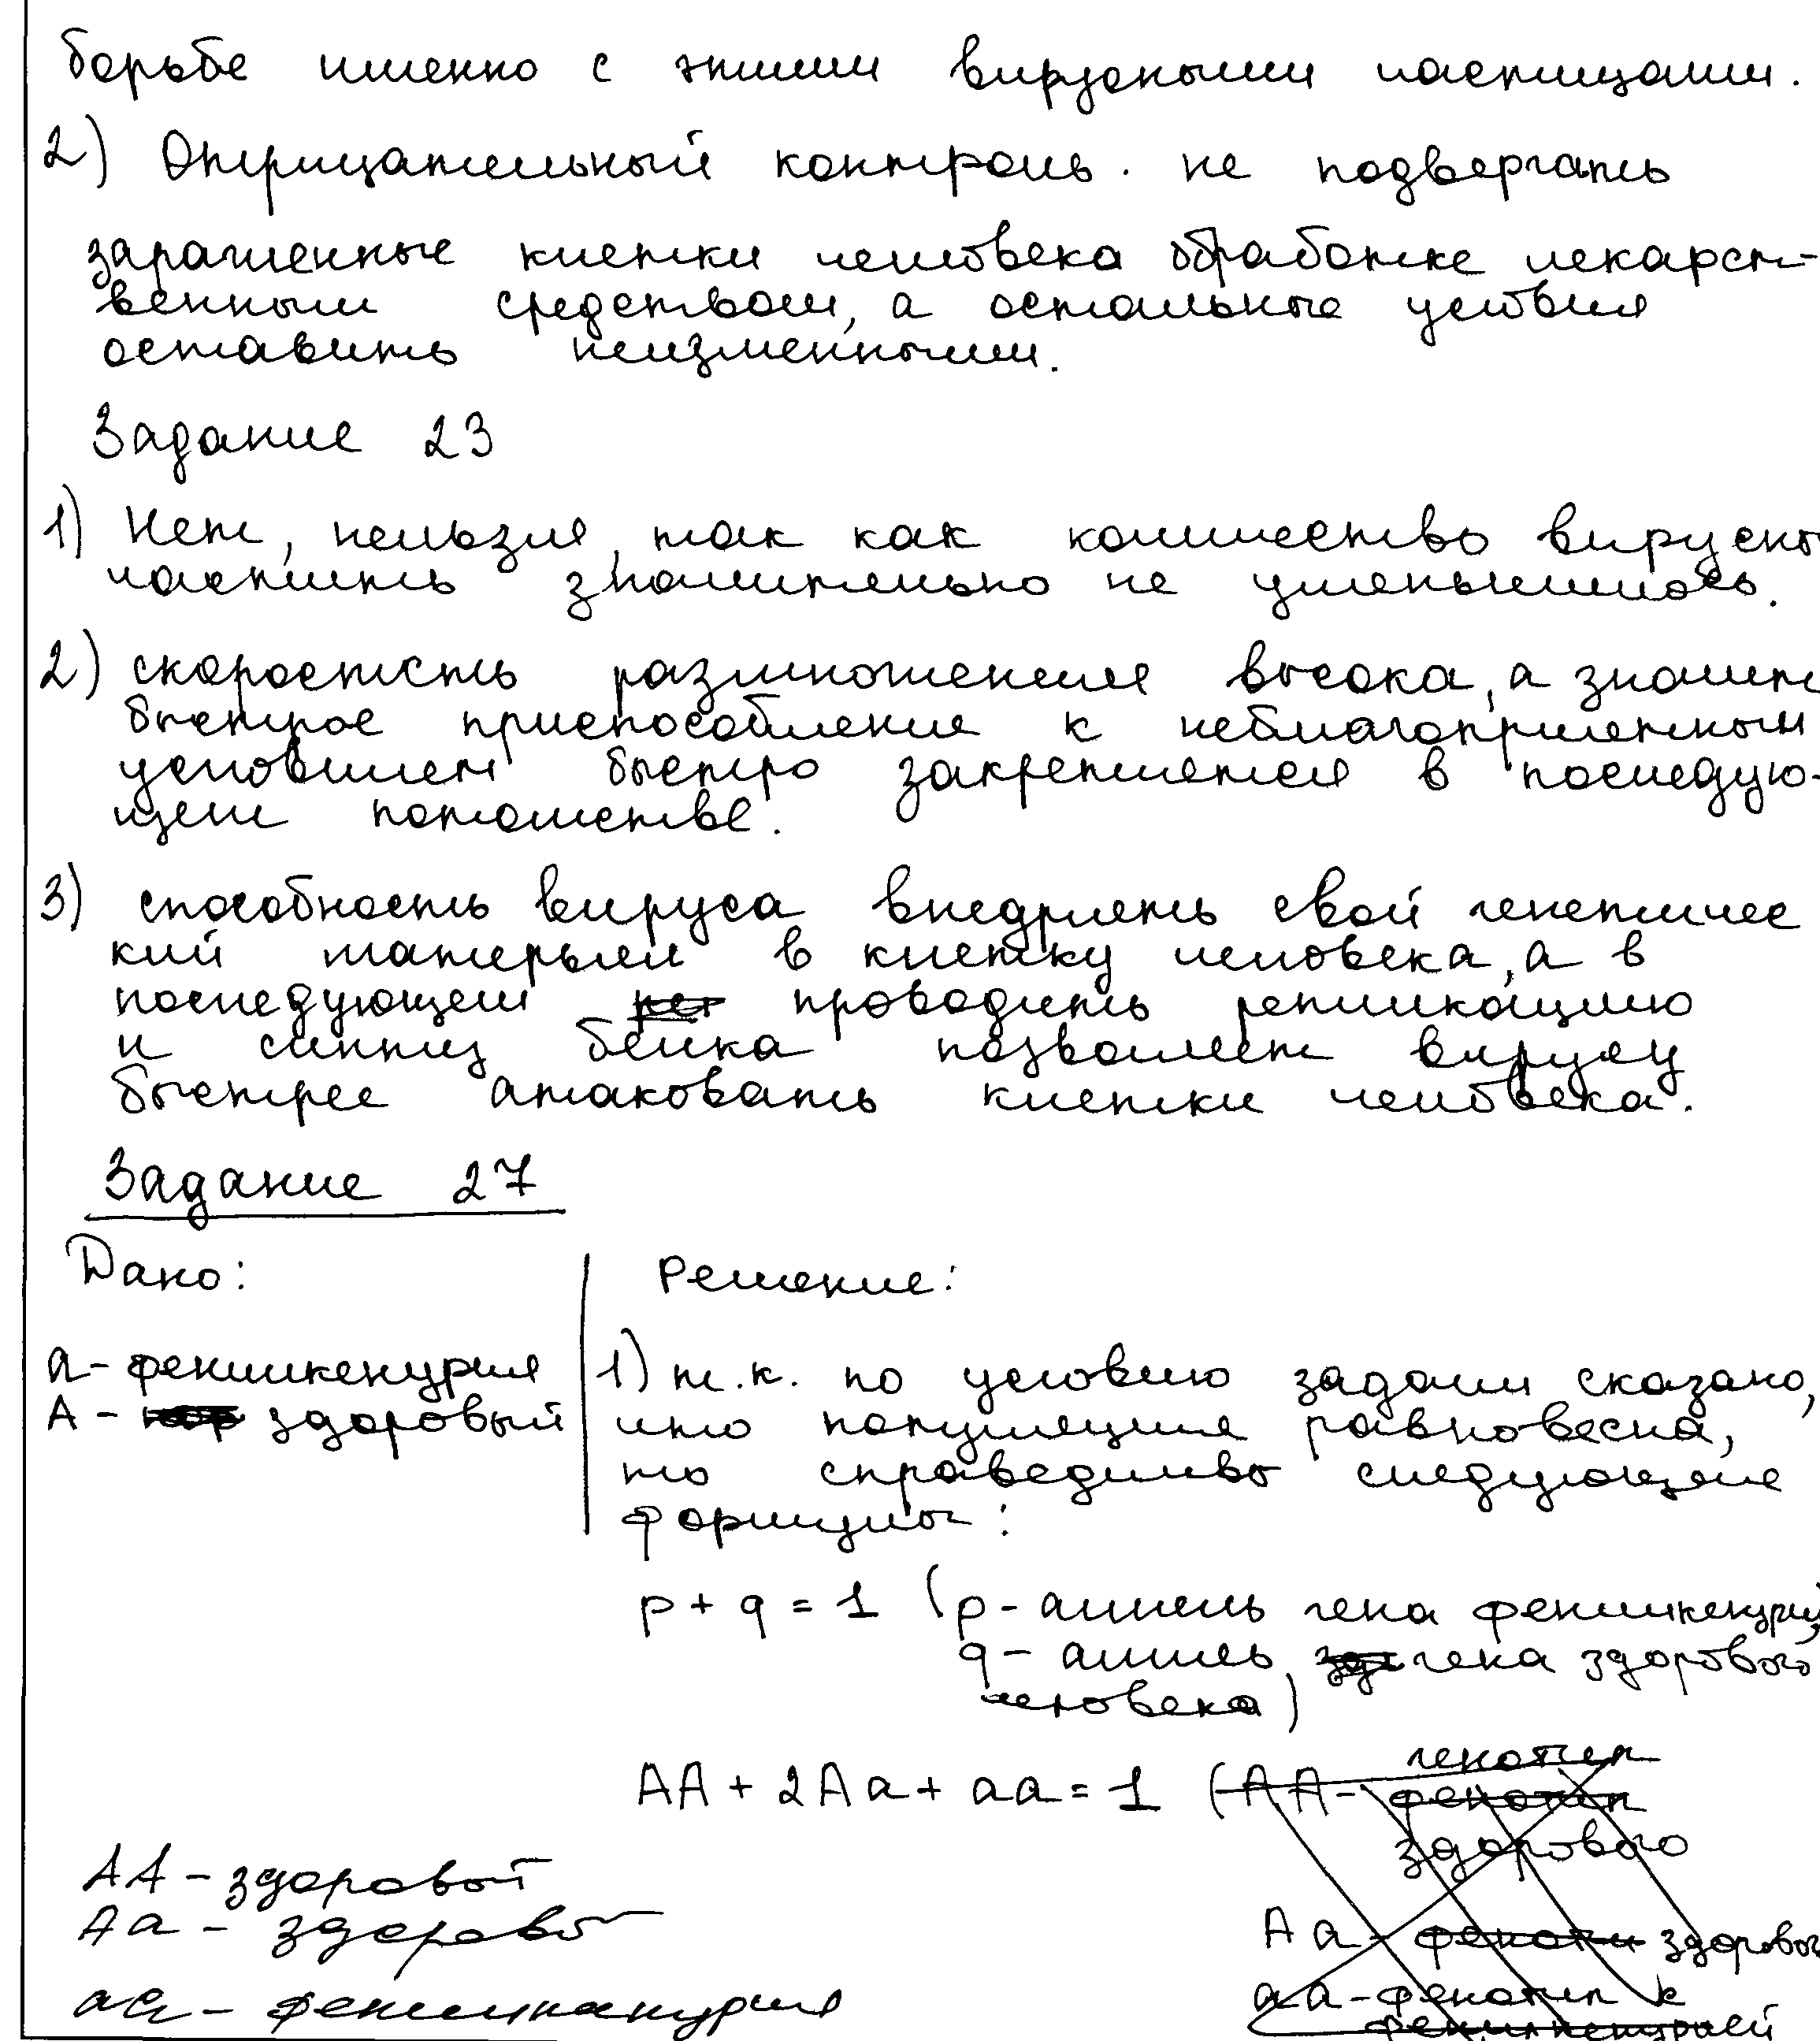 борьбе именно с этими вирусными частицами.
2) Отрицательный контроль. не подвергать
зараженные клетки человека обработке лекарст-
венным средством, а остальные условия
оставить неизменными.
Задание 23
1) Нет, нельзя, так как количество вирусны
частить значительно не уменьшилось.
2) скоростсть размножения высока, а значит
быстрое приспособление к неблагоприятным
условиям быстро закрепляется в последую-
щем потомстве.
3) способность вируса внедрять свой генетичес
кий матерьял в клетку человека, а в
последующем проводить репликацию
и синтиз белка позволяет вирусу
быстрее атаковать клетки человека.
Задание 27
Дано:
Решение:
а - фенилкенурия
А - здоровый
1) т.к. по условию задачи сказано,
что популяция равновесна,
то справедливо следующие
формулы:
p + q = 1 (p - аллель гена фенилкенурии,
q - аллель гена здорового
человека)
АА + 2Аа + аа = 1 (АА - генотип
фенотип
здорового
АА - здоровый
Аа - здоров
аа - фенилканурия
Аа - феноти здоровог
аа - фенотип к
фенилкенурией